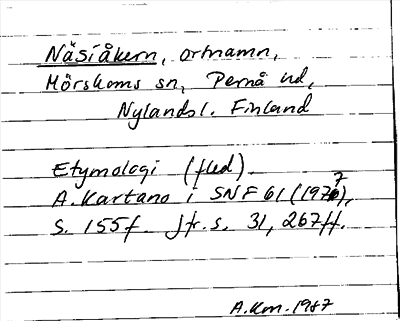 Näsiåkern, ortnamn,
Mörskoms sn, Pernå hd,
Nylands l. Finland
Etymologi (fled).
A. Kartano i SNF 61 (1977),
s. 155f. Jfr. s. 31, 267ff.
A.Km. 1987